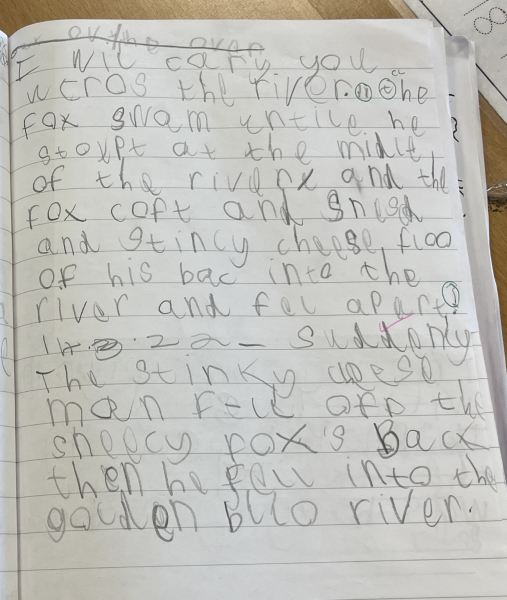 over the over
I wil cariy you
ucros the river. the
fox swam untile he
stoypt at the midle
of the riverx and the
fox coft and snesd
and stincy cheese floo
of his bac into the
river and fel apart
1 2 2 2 – suddenly
The stinky cheese
man fell off the
sneecy fox's Back
then he fell into the
golden bloo river.